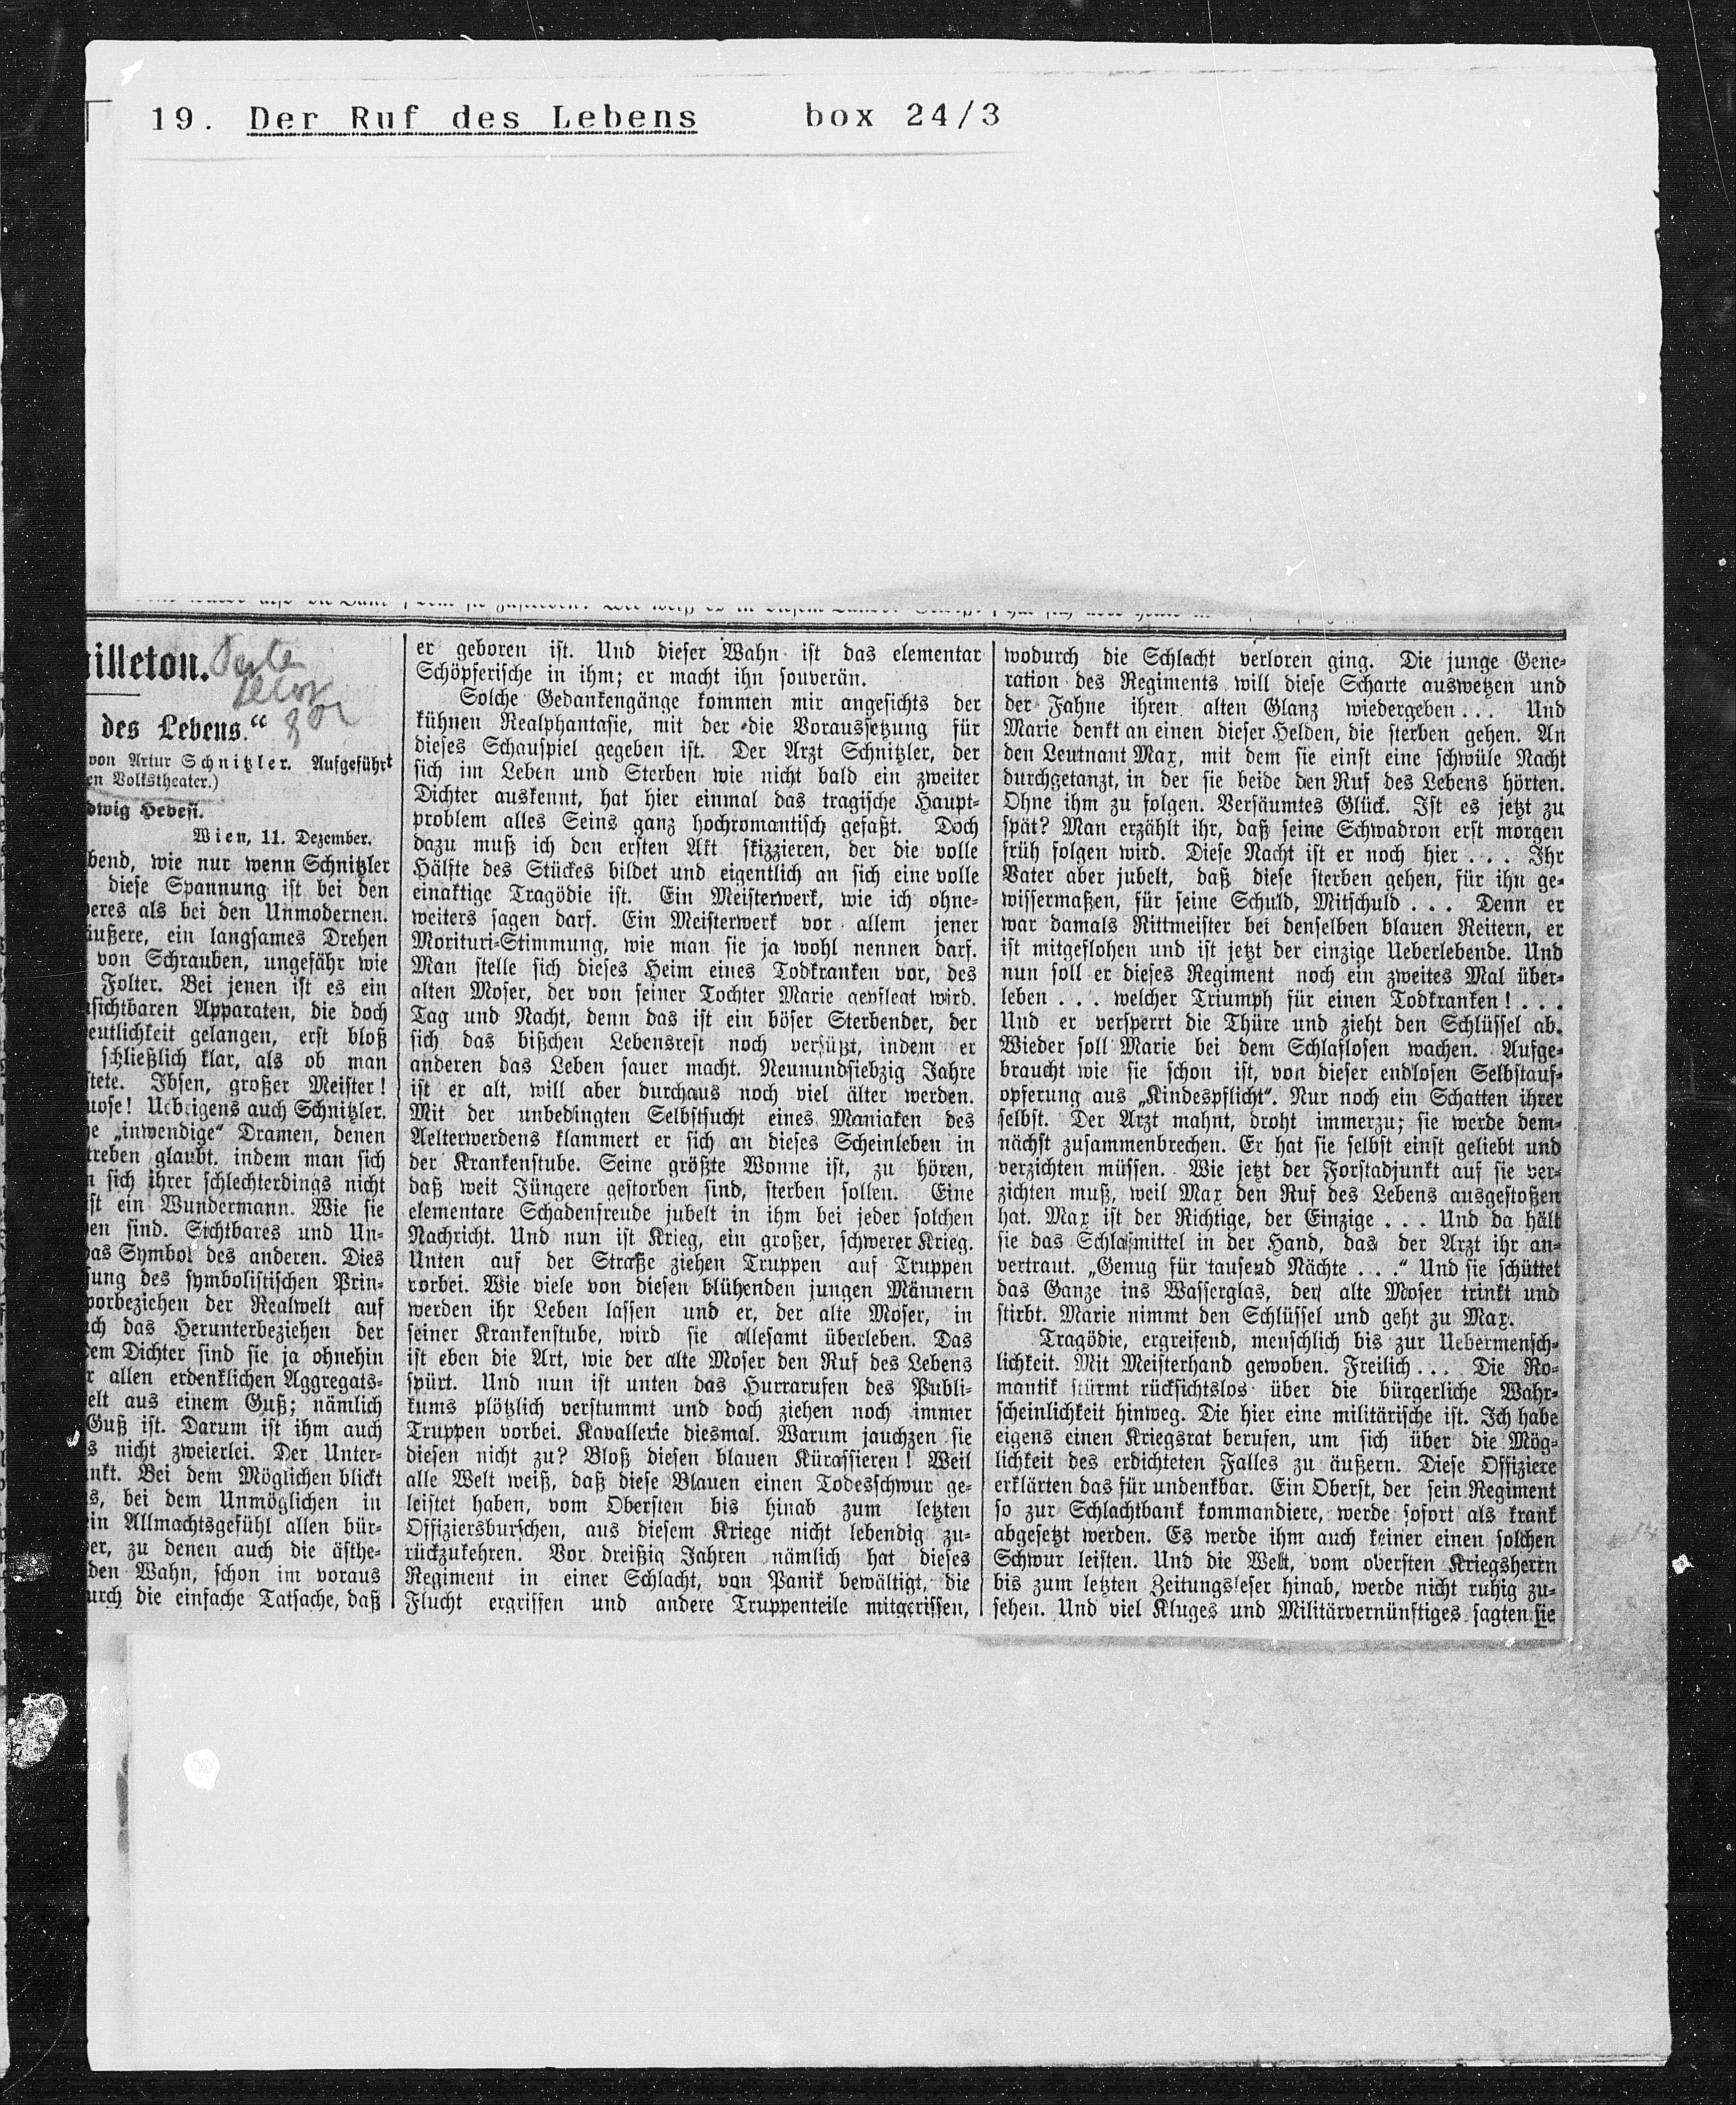 19. Der Ruf des Lebens box 24/3
illeton.
des Lebens.“
von Artur Schnitzler. Aufgeführt
en Volkstheater.)
dwig Hevesi.
Wien, 11. Dezember.
bend, wie nur wenn Schnitzler
diese Spannung ist bei den
eres als bei den Unmodernen.
äußere, ein langsames Drehen
von Schrauben, ungefähr wie
Folter. Bei jenen ist es ein
sichtbaren Apparaten, die doch
eutlichkeit gelangen, erst bloß
schließlich klar, als ob man
tete. Ibsen, großer Meister!
uose! Uebrigens auch Schnitzler.
e „inwendige“ Dramen, denen
treben glaubt, indem man sich
n sich ihrer schlechterdings nicht
st ein Wundermann. Wie sie
en sind. Sichtbares und Un-
as Symbol des anderen. Dies
sung des symbolistischen Prin-
porbeziehen der Realwelt auf
ch das Herunterbeziehen der
em Dichter sind sie ja ohnehin
r allen erdenklichen Aggregats-
elt aus einem Guß; nämlich
Guß ist. Darum ist ihm auch
s nicht zweierlei. Der Unter-
nkt. Bei dem Möglichen blickt
s, bei dem Unmöglichen in
in Allmachtsgefühl allen bür-
er, zu denen auch die ästhe-
den Wahn, schon im voraus
urch die einfache Tatsache, daß
er geboren ist. Und dieser Wahn ist das elementar
Schöpferische in ihm; er macht ihn souverän.
Solche Gedankengänge kommen mir angesichts der
kühnen Realphantasie, mit der die Voraussetzung für
dieses Schauspiel gegeben ist. Der Arzt Schnitzler, der
sich im Leben und Sterben wie nicht bald ein zweiter
Dichter auskennt, hat hier einmal das tragische Haupt-
problem alles Seins ganz hochromantisch gefaßt. Doch
dazu muß ich den ersten Akt skizzieren, der die volle
Hälfte des Stückes bildet und eigentlich an sich eine volle
einaktige Tragödie ist. Ein Meisterwerk, wie ich ohne-
weiters sagen darf. Ein Meisterwerk vor allem jener
Morituri-Stimmung, wie man sie ja wohl nennen darf.
Man stelle sich dieses Heim eines Todkranken vor, des
alten Moser, der von seiner Tochter Marie gepflegt wird.
Tag und Nacht, denn das ist ein böser Sterbender, der
sich das bißchen Lebensrest noch versüßt, indem er
anderen das Leben sauer macht. Neunundsiebzig Jahre
ist er alt, will aber durchaus noch viel älter werden.
Mit der unbedingten Selbstsucht eines Maniaken des
Aelterwerdens klammert er sich an dieses Scheinleben in
der Krankenstube. Seine größte Wonne ist, zu hören,
daß weit Jüngere gestorben sind, sterben sollen. Eine
elementare Schadenfreude jubelt in ihm bei jeder solchen
Nachricht. Und nun ist Krieg, ein großer, schwerer Krieg.
Unten auf der Straße ziehen Truppen auf Truppen
vorbei. Wie viele von diesen blühenden jungen Männern
werden ihr Leben lassen und er, der alte Moser, in
seiner Krankenstube, wird sie allesamt überleben. Das
ist eben die Art, wie der alte Moser den Ruf des Lebens
spürt. Und nun ist unten das Hurrarufen des Publi-
kums plötzlich verstummt und doch ziehen noch immer
Truppen vorbei. Kavallerie diesmal. Warum jauchzen sie
diesen nicht zu? Bloß diesen blauen Kürassieren! Weil
alle Welt weiß, daß diese Blauen einen Todesschwur ge-
leistet haben, vom Obersten bis hinab zum letzten
Offiziersburschen, aus diesem Kriege nicht lebendig zu-
rückzukehren. Vor dreißig Jahren nämlich hat dieses
Regiment in einer Schlacht, von Panik bewältigt, die
Flucht ergriffen und andere Truppenteile mitgerissen,
wodurch die Schlacht verloren ging. Die junge Gene-
ration des Regiments will diese Scharte auswetzen und
der Fahne ihren alten Glanz wiedergeben... Und
Marie denkt an einen dieser Helden, die sterben gehen. An
den Leutnant Max, mit dem sie einst eine schwüle Nacht
durchgetanzt, in der sie beide den Ruf des Lebens hörten.
Ohne ihm zu folgen. Versäumtes Glück. Ist es jetzt zu
spät? Man erzählt ihr, daß seine Schwadron erst morgen
früh folgen wird. Diese Nacht ist er noch hier . . . Ihr
Vater aber jubelt, daß diese sterben gehen, für ihn ge-
wissermaßen, für seine Schuld, Mitschuld . . . Denn er
war damals Rittmeister bei denselben blauen Reitern, er
ist mitgeflohen und ist jetzt der einzige Ueberlebende. Und
nun soll er dieses Regiment noch ein zweites Mal über-
leben . . . welcher Triumph für einen Todkranken! . . .
Und er versperrt die Thüre und zieht den Schlüssel ab.
Wieder soll Marie bei dem Schlaflosen wachen. Aufge-
braucht wie sie schon ist, von dieser endlosen Selbstauf-
opferung aus „Kindespflicht“. Nur noch ein Schatten ihrer
selbst. Der Arzt mahnt, droht immerzu; sie werde dem-
nächst zusammenbrechen. Er hat sie selbst einst geliebt und
verzichten müssen. Wie jetzt der Forstadjunkt auf sie ver-
zichten muß, weil Max den Ruf des Lebens ausgestoßen
hat. Max ist der Richtige, der Einzige . . . Und da hält
sie das Schlafmittel in der Hand, das der Arzt ihr an-
vertraut. „Genug für tausend Nächte . . .“ Und sie schüttet
das Ganze ins Wasserglas, der alte Moser trinkt und
stirbt. Marie nimmt den Schlüssel und geht zu Max.
Tragödie, ergreifend, menschlich bis zur Uebermensch-
lichkeit. Mit Meisterhand gewoben. Freilich... Die Ro-
mantik stürmt rücksichtslos über die bürgerliche Wahr-
scheinlichkeit hinweg. Die hier eine militärische ist. Ich habe
eigens einen Kriegsrat berufen, um sich über die Mög-
lichkeit des erdichteten Falles zu äußern. Diese Offiziere
erklärten das für undenkbar. Ein Oberst, der sein Regiment
so zur Schlachtbank kommandiere, werde sofort als krank
abgesetzt werden. Es werde ihm auch keiner einen solchen
Schwur leisten. Und die Welt, vom obersten Kriegsherrn
bis zum letzten Zeitungsleser hinab, werde nicht ruhig zu-
sehen. Und viel Kluges und Militärvernünftiges sagten sie